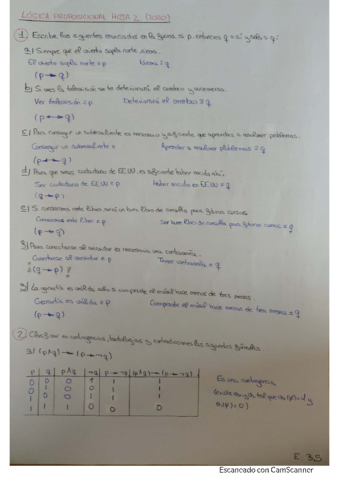 LÓGICA PROPOSICIONAL HOJA 2 (TODO)
① Escribe los siguientes enunciados en la forma si p, entonces q o si y sólo si q:
a) Siempre que el viento sopla norte nieva.
El viento sopla norte = p Nieva = q
(p → q)
b) Si ves la televisión se te deteriorará el cerebro y viceversa.
Ver televisión = p Deteriorará el cerebro = q
(p ↔ q)
c) Para conseguir un sobresaliente es necesario y suficiente que aprendas a resolver problemas.
Conseguir un sobresaliente = p Aprender a resolver problemas = q
(p ↔ q)
d) Para que seas ciudadano de EE.UU. es suficiente haber nacido ahí.
Ser ciudadano de EE.UU = p haber nacido en EE.UU = q
(q → p)
e) Si conservas este libro, será un buen libro de consulta para futuros cursos.
Conservar este libro = p Ser buen libro de consulta para futuros cursos = q
(p → q)
f) Para conectarse al servidor es necesaria una contraseña.
Conectarse al servidor = p Tener contraseña = q
¿ (q → p) ?
g) La garantía es válida sólo si compraste el móvil hace menos de tres meses
Garantía es válida = p Compraste el móvil hace menos de tres meses = q
(p → q)
② Clasificar en contingencia, tautologías y contradicciones las siguientes fórmulas
a) (p∧q) → (p → ¬q)
p q p∧q ¬q p → ¬q (p∧q) → (p → ¬q)
0 0 0 1 1 1
0 1 0 0 1 1
1 0 0 1 1 1
1 1 1 0 0 0
Es una contingencia
E 3.5
Escaneado con CamScanner